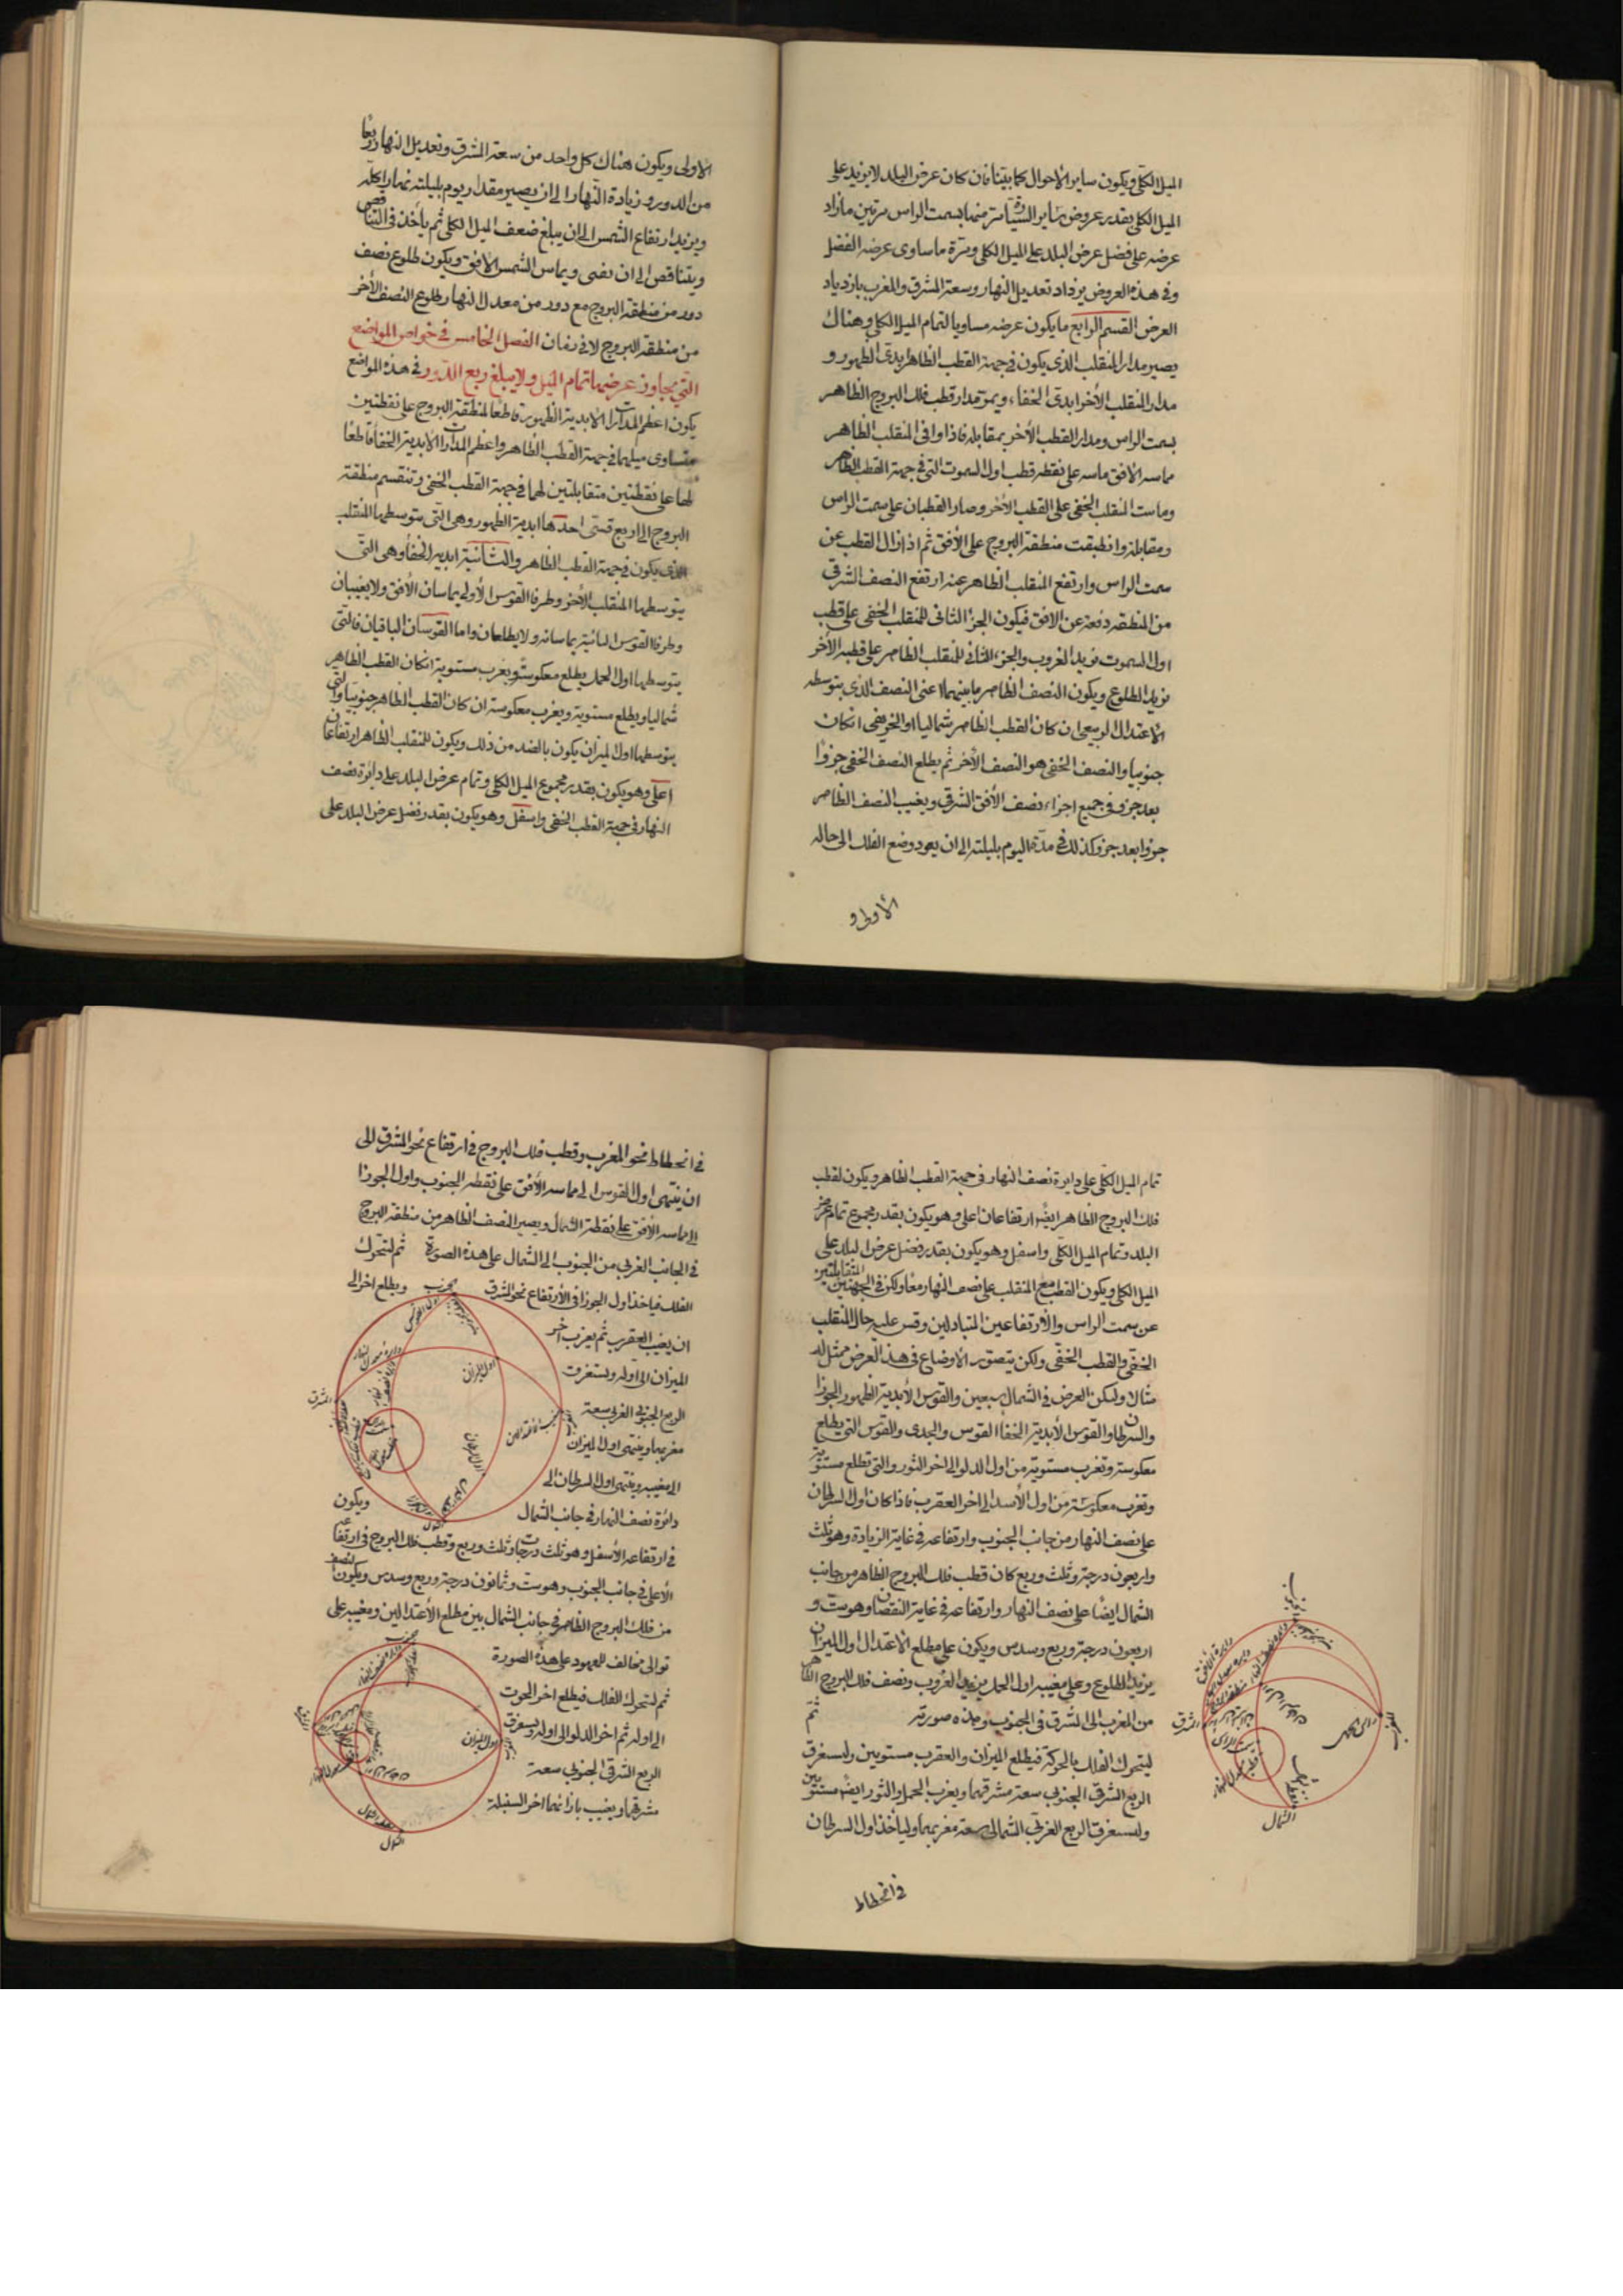 الميل الكلى ويكون ساير الأحوال كما بيّنا فان كان عرض البلد لا يزيد على
الميل الكلى بقدر عروض ساير السيّارة مرّ منها بسمت الراس مرتين ما زاد
عرضه على فضل عرض البلد على الميل الكلى ومرة ما ساوى عرضه الفضل
وفى هذه العروض يزداد تعديل النهار وسعة المشرق والمغرب بازدياد
العرض القسم الرابع ما يكون عرضه مساويا لتمام الميل الكلى وهناك
يصير مدار المنقلب الذى يكون فى جهة القطب الظاهر ابدى الظهور و
مدار المنقلب الأخر ابدى الخفاء ويمر مدار قطب فلك البروج الظاهر
بسمت الراس ومدار القطب الأخر بمقابله فاذا وافى المنقلب الظاهر
مماسه الافق ماسه على نقطه قطب اول السموت التى فى جهة القطب الظاهر
وماست المنقلب الخفى على القطب الأخر وصار القطبان على سمت الراس
ومقابله وانطبقت منطقة البروج على الأفق ثم اذا زال القطب عن
سمت الراس وارتفع المنقلب الظاهر عنه ارتفع النصف الشرقى
من المنطقه دفعة عن الافق فيكون الجزء التالى للمنقلب الخفى على قطب
اول السموت يريد الغروب والجزء التالى للمنقلب الظاهر على قطبه الأخر
يريد الطلوع ويكون النصف الظاهر ما بينهما اعنى النصف الذى يتوسطه
الاعتدال الربيعى ان كان القطب الظاهر شماليا او الخريفى ان كان
جنوبيا والنصف الخفى هو النصف الأخر ثم يطلع النصف الخفى جزوا
بعد جزو فى جميع اجزاء نصف الأفق الشرقى ويغيب النصف الظاهر
جزوا بعد جزو كذلك فى مدة اليوم بليلته الى ان يعود وضع الفلك الى حاله
الأولى و
الأولى ويكون هناك كل واحد من سعة المشرق وتعديل النهار ربعا
من الدور وزيادة النهار الى ان يصير مقدار يوم بليلته نهارا كله
ويزيد ارتفاع الشمس الى ان يبلغ ضعف الميل الكلى ثم يأخذ فى التناقص
ويتناقص الى ان يفنى ويماس الشمس الافق ويكون طلوع نصف
دور من منطقة البروج مع دور من معدل النهار وطلوع النصف الأخر
من منطقة البروج لا فى زمان الفصل الخامس فى خواص المواضع
التى يجاوز عرضها تمام الميل ولا يبلغ ربع الدور فى هذه المواضع
يكون اعظم المدارات الأبدية الظهور قاطعا لمنطقة البروج على نقطتين
متساوى ميليهما فى جهة القطب الظاهر واعظم المدارات الأبدية الخفا قاطعا
لها على نقطتين متقابلتين لهما فى جهة القطب الخفى وتنقسم منطقة
البروج الى اربع قسى احدها ابدية الظهور وهى التى يتوسطها المنقلب
الذى يكون فى جهة القطب الظاهر والثانية ابدية الخفا وهى التى
يتوسطها المنقلب الأخر وطرفا القوس الأولى يماسان الأفق ولا يغيبان
وطرفا القوس الثانية يماسانه ولا يطلعان واما القوسان الباقيان فالتى
يتوسطها اول الحمل يطلع معكوسة ويغرب مستوية ان كان القطب الظاهر
شماليا ويطلع مستوية ويغرب معكوسة ان كان القطب الظاهر جنوبيا والتى
يتوسطها اول الميزان يكون بالضد من ذلك ويكون للمنقلب الظاهر ارتفاعان
اعلى وهو يكون بقدر مجموع الميل الكلى وتمام عرض البلد على دائرة نصف
النهار فى جهة القطب الخفى واسفل وهو يكون بقدر فضل عرض البلد على
تمام الميل الكلى على دايرة نصف النهار فى جهة القطب الظاهر ويكون لقطب
فلك البروج الظاهر ايضا ارتفاعان اعلى وهو يكون بقدر مجموع تمام عرض
البلد وتمام الميل الكلى واسفل وهو يكون بقدر فضل عرض البلد على
الميل الكلى ويكون القطب مع المنقلب على نصف النهار معا ولكن فى الجهتين المتقابلتين
عن سمت الراس والارتفاعين المتبادلين وقس عليه حال المنقلب
الخفى والقطب الخفى ولكن يتصور الأوضاع فى هذا العرض ممثل له
مثالا وليكن العرض فى الشمال سبعين والقوس الأبدية الظهور الجوزا
والسرطان والقوس الأبدية الخفا القوس والجدى والقوس التى يطلع
معكوسة وتغرب مستوية من اول الدلو الى اخر الثور والتى تطلع مستوية
وتغرب معكوسة من اول الأسد الى اخر العقرب فاذا كان اول السرطان
على نصف النهار من جانب الجنوب وارتفاعه فى غاية الزيادة وهو ثلث
واربعون درجة وثلث وربع كان قطب فلك البروج الظاهر من جانب
الشمال ايضا على نصف النهار وارتفاعه فى غاية النقصان وهو ست و
اربعون درجة وربع وسدس ويكون على مطلع الاعتدال اول الميزان
يريد الطلوع وعلى مغيبه اول الحمل يريد الغروب ونصف فلك البروج الظاهر
من المغرب الى المشرق فى الجنوب وهذه صورته ثم
ليتحرك الفلك بالحركة فيطلع الميزان والعقرب مستويين وليستغرق
الربع الشرقى الجنوبى سعة مشرقهما ويغرب الحمل والثور ايضا مستويين
وليستغرق الربع الغربى الشمالى سعة مغربهما وليأخذ اول السرطان
فى انحطاط
الجنوب
المشرق
سمت الراس
الشمال
فى انحطاط نحو المغرب وقطب فلك البروج فى ارتفاع نحو المشرق الى
ان ينتهى اول القوس الى مماسه الأفق على نقطه الجنوب واول الجوزا
الى مماسه الافق على نقطة الشمال ويصير النصف الظاهر من منطقة البروج
فى الجانب الغربى من الجنوب الى الشمال على هذه الصورة ثم ليتحرك
الفلك فياخذ اول الجوزا فى الأرتفاع نحو المشرق ويطلع اخر الى
ان يغيب العقرب ثم يغرب اخر
الميزان الى اوله ويستغرق
الربع الجنوبى الغربى سعة
مغربهما وينتهى اول الميزان
الى مغيبه وينتهى اول السرطان الى
دائرة نصف النهار فى جانب الشمال ويكون
فى ارتفاعه الأسفل وهو ثلث درجات وثلث وربع وقطب فلك البروج فى ارتفاعه
الأعلى فى جانب الجنوب وهو ست وثمانون درجة وربع وسدس ويكون النصف
من فلك البروج الظاهر فى جانب الشمال بين مطلع الأعتدالين ومغيبه على
توالى مخالف للمعهود على هذه الصورة
ثم ليتحرك الفلك فيطلع اخر الحوت
الى اوله ثم اخر الدلو الى اوله ويستغرق
الربع الشرقى الجنوبى سعة
مشرقهما ويغيب بازائهما اخر السنبلة
جنوب
المشرق
اول الميزان
اول السرطان
جنوب
اول الميزان
الشمال